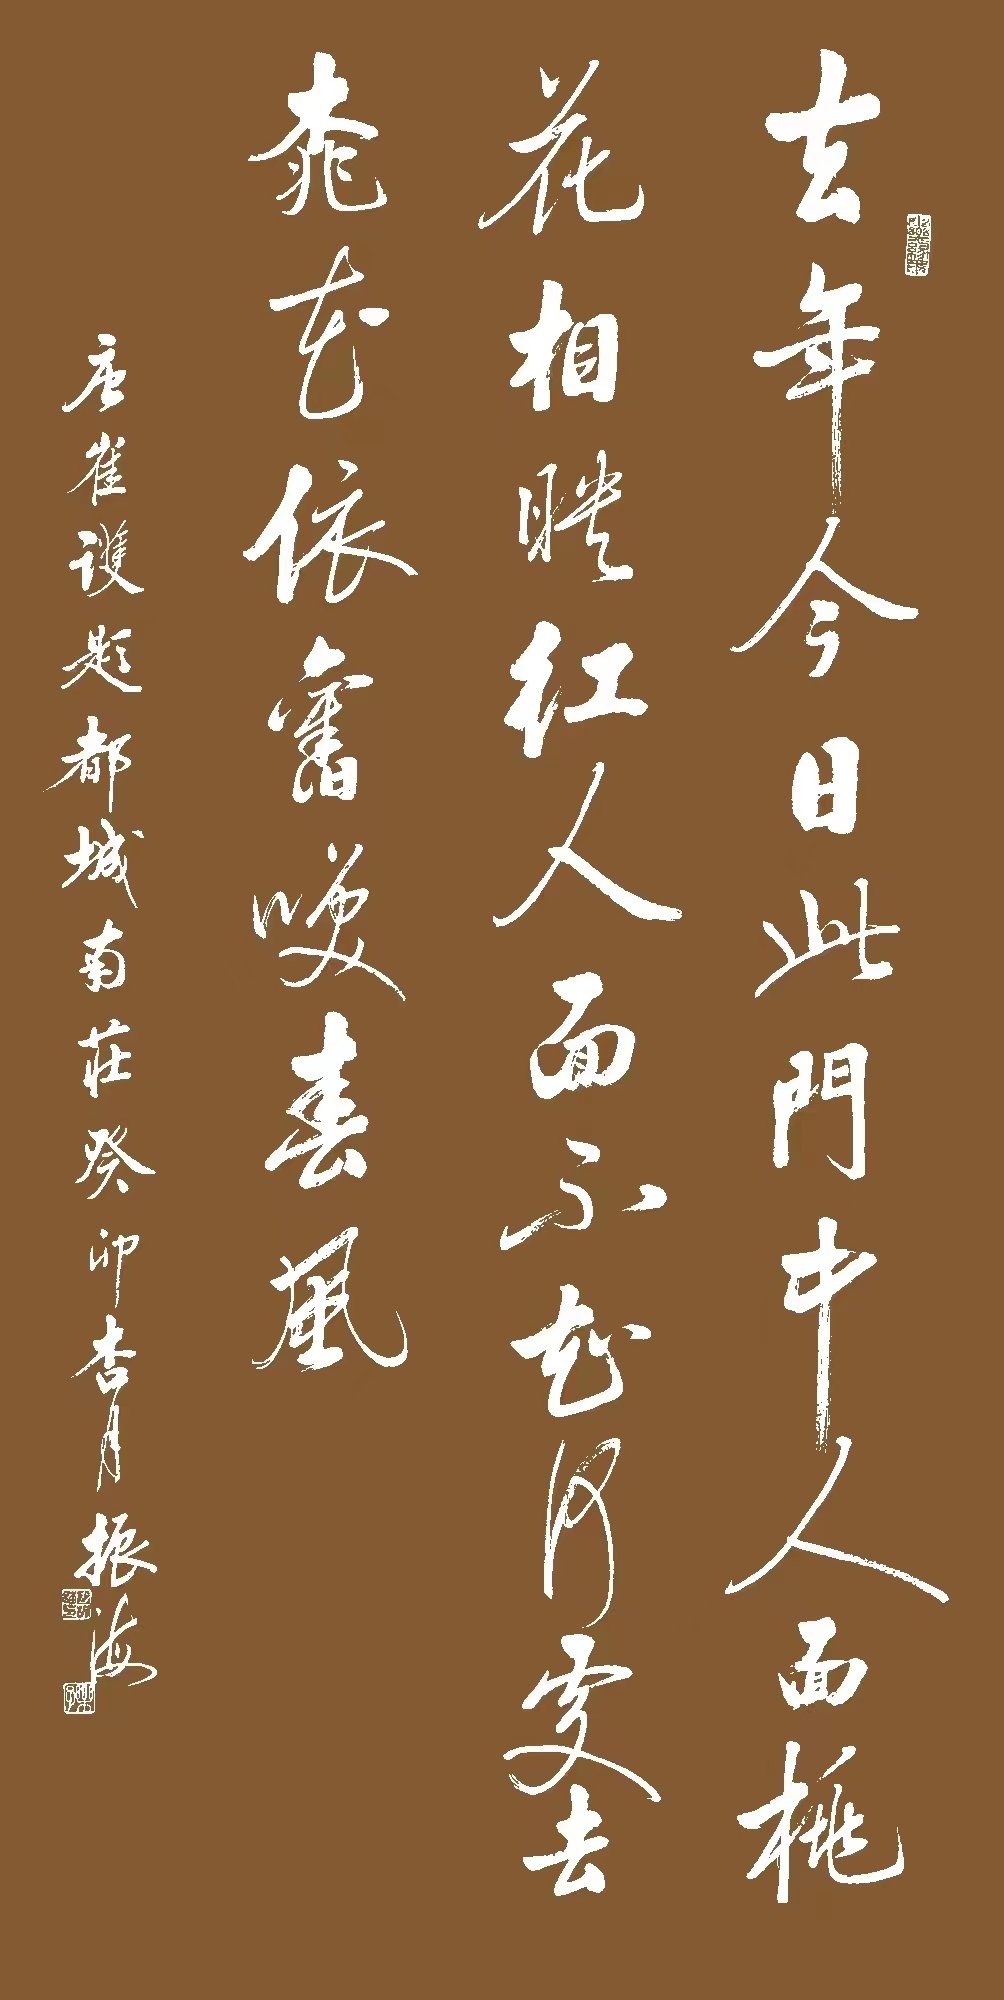 去年今日此門中人面桃
花相映紅人面不知何處去
桃花依舊咲春風
唐崔護題都城南莊癸卯杏月振海